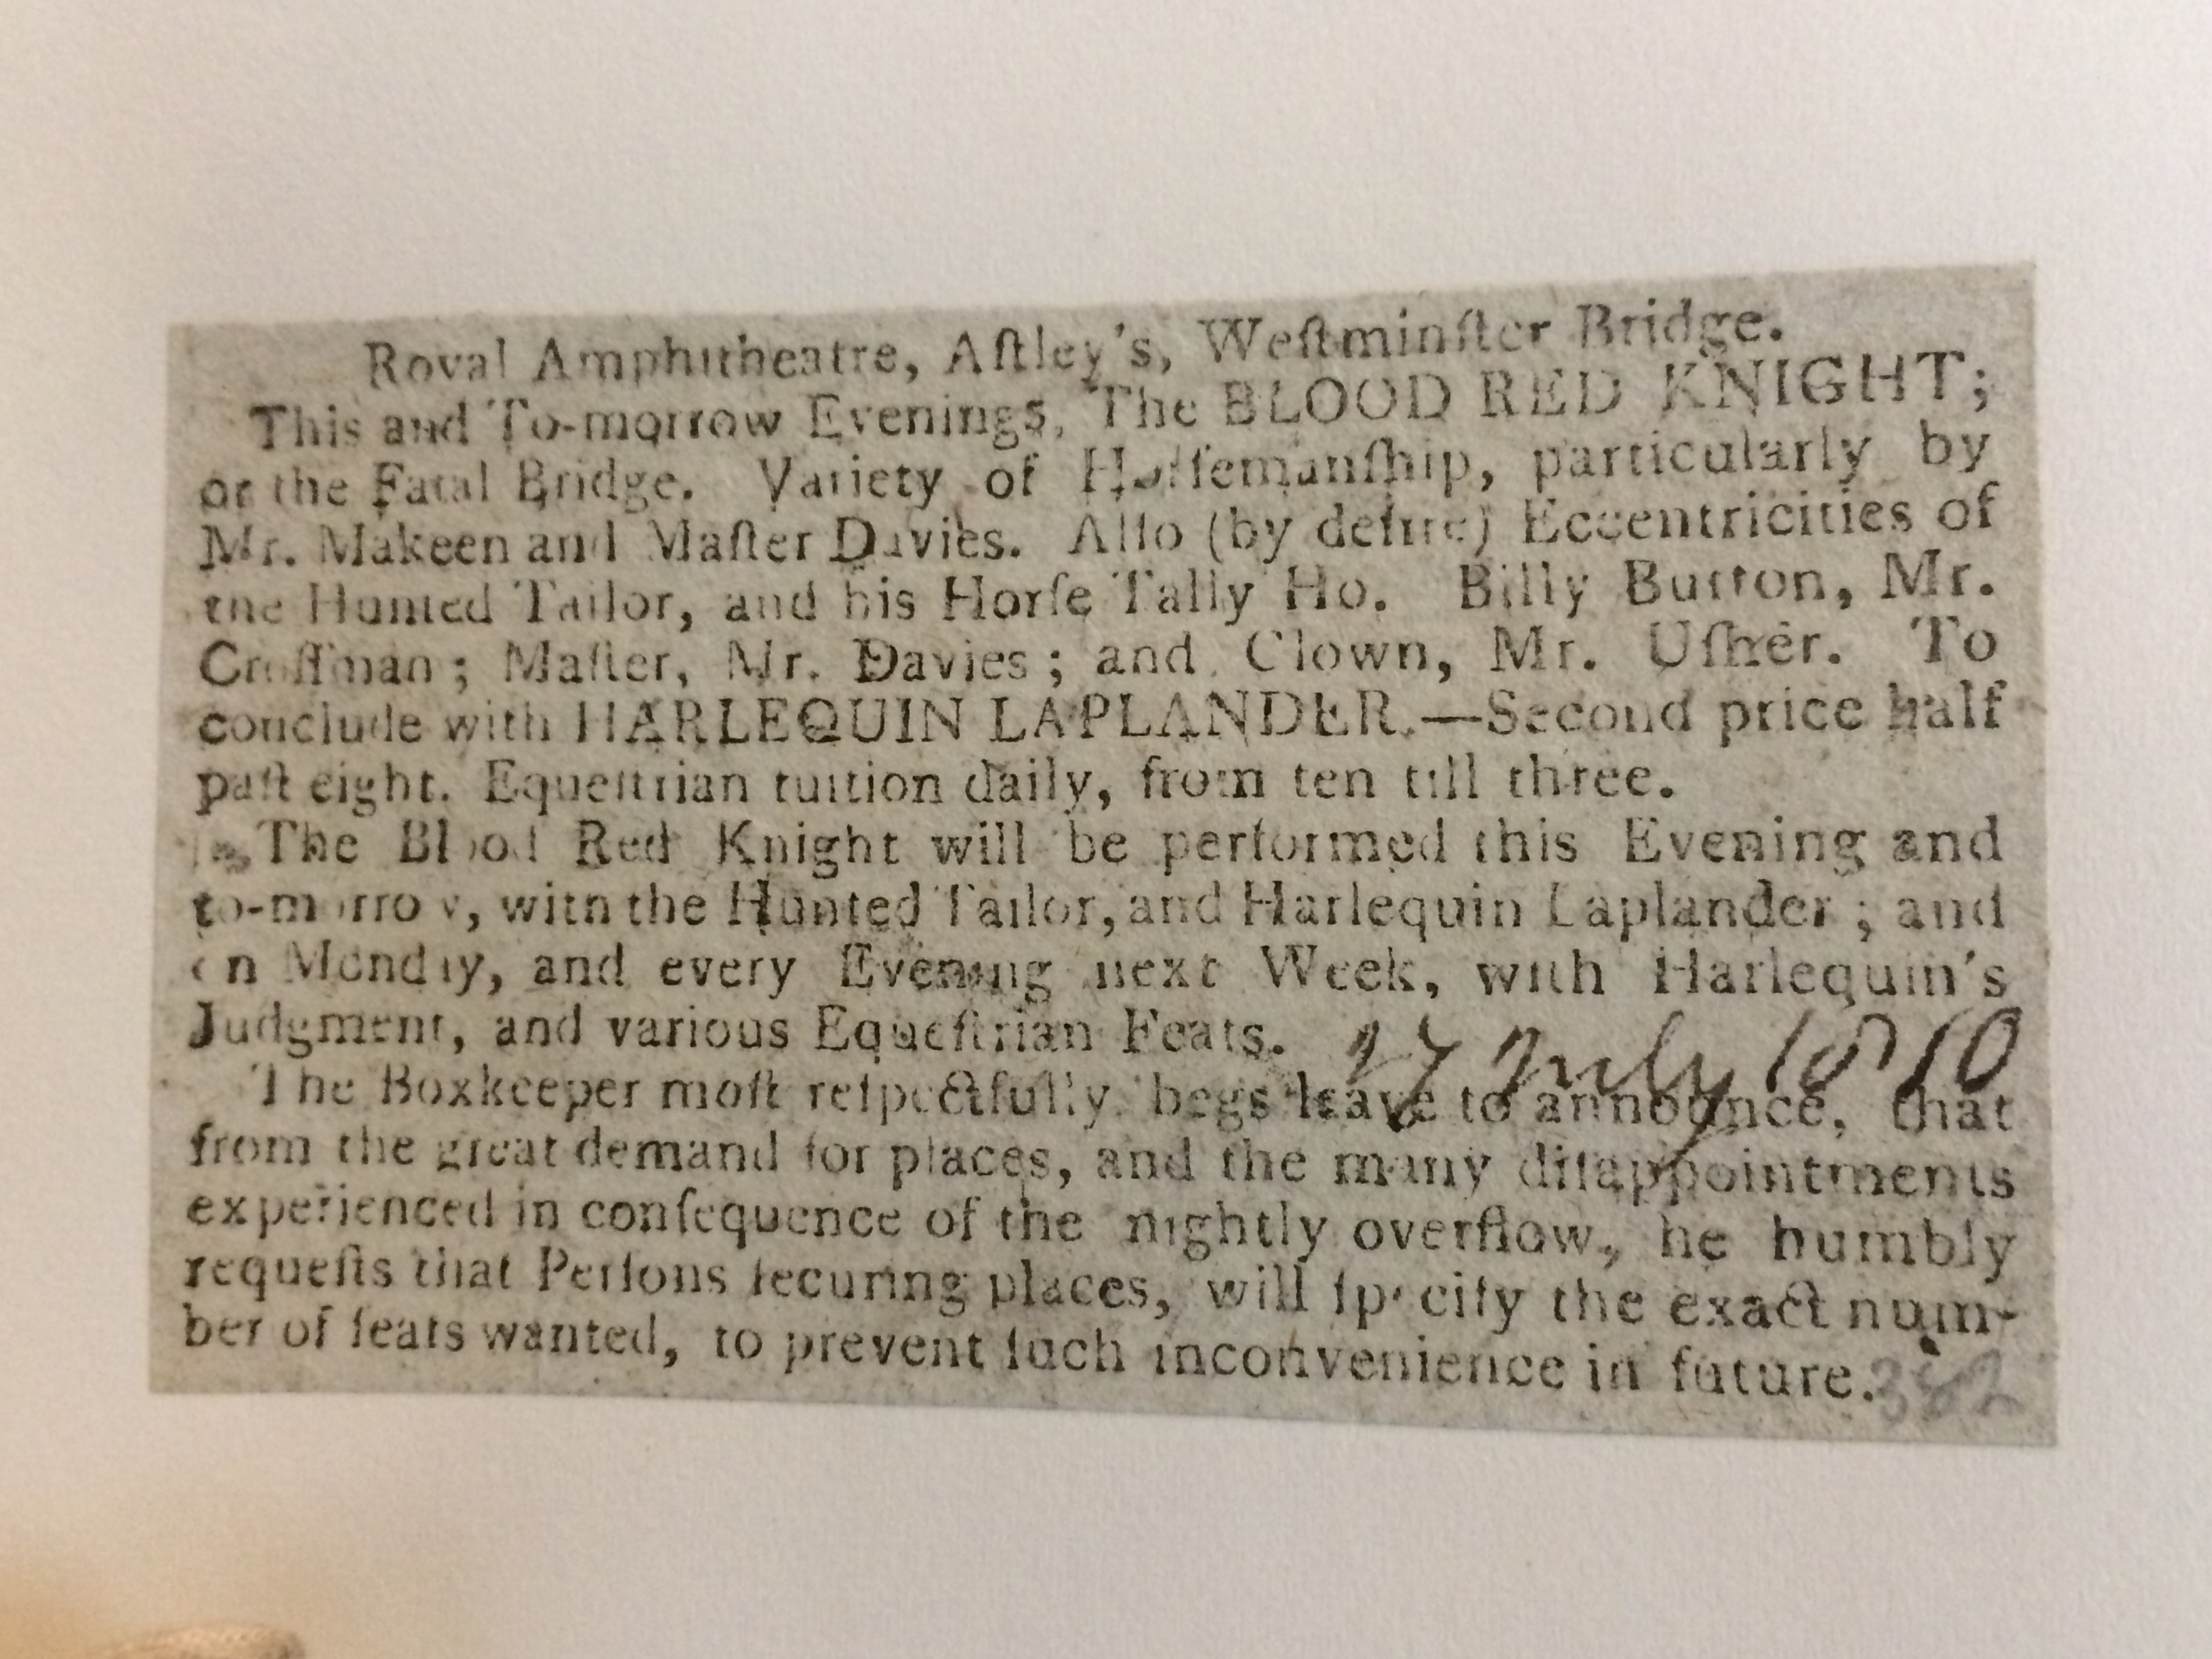 Royal Amphitheatre, Aſtley's, Weſtminſter Bridge.
This and To-morrow Evenings, The BLOOD RED KNIGHT;
or the Fatal Bridge. Variety of Horſemanſhip, particularly by
Mr. Makeen and Maſter Davies. Alſo (by deſire) Eccentricities of
the Hunted Tailor, and his Horſe Tally Ho. Billy Button, Mr.
Croſſman; Maſter, Mr. Davies; and Clown, Mr. Uſher. To
conclude with HARLEQUIN LAPLANDER.—Second price half
paſt eight. Equeſtrian tuition daily, from ten till three.
The Blood Red Knight will be performed this Evening and
to-morrow, with the Hunted Tailor, and Harlequin Laplander; and
on Monday, and every Evening next Week, with Harlequin's
Judgment, and various Equeſtrian Feats.
July 1810
The Boxkeeper moſt reſpectfully begs leave to announce, that
from the great demand for places, and the many diſappointments
experienced in conſequence of the nightly overflow, he humbly
requeſts that Perſons ſecuring places, will ſpecify the exact num-
ber of ſeats wanted, to prevent ſuch inconvenience in future.
382